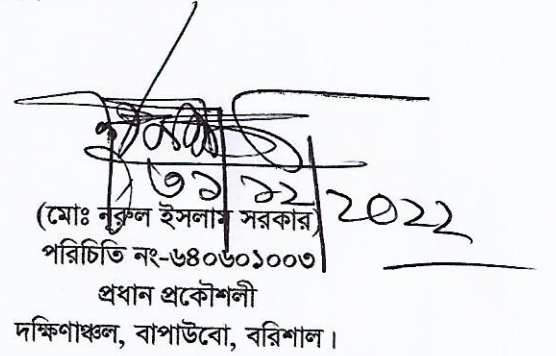 ৩১|১২|2022
(মোঃ নূরুল ইসলাম সরকার)
পরিচিতি নং-৬৪০৬০১০০৩
প্রধান প্রকৌশলী
দক্ষিণাঞ্চল, বাপাউবো, বরিশাল।